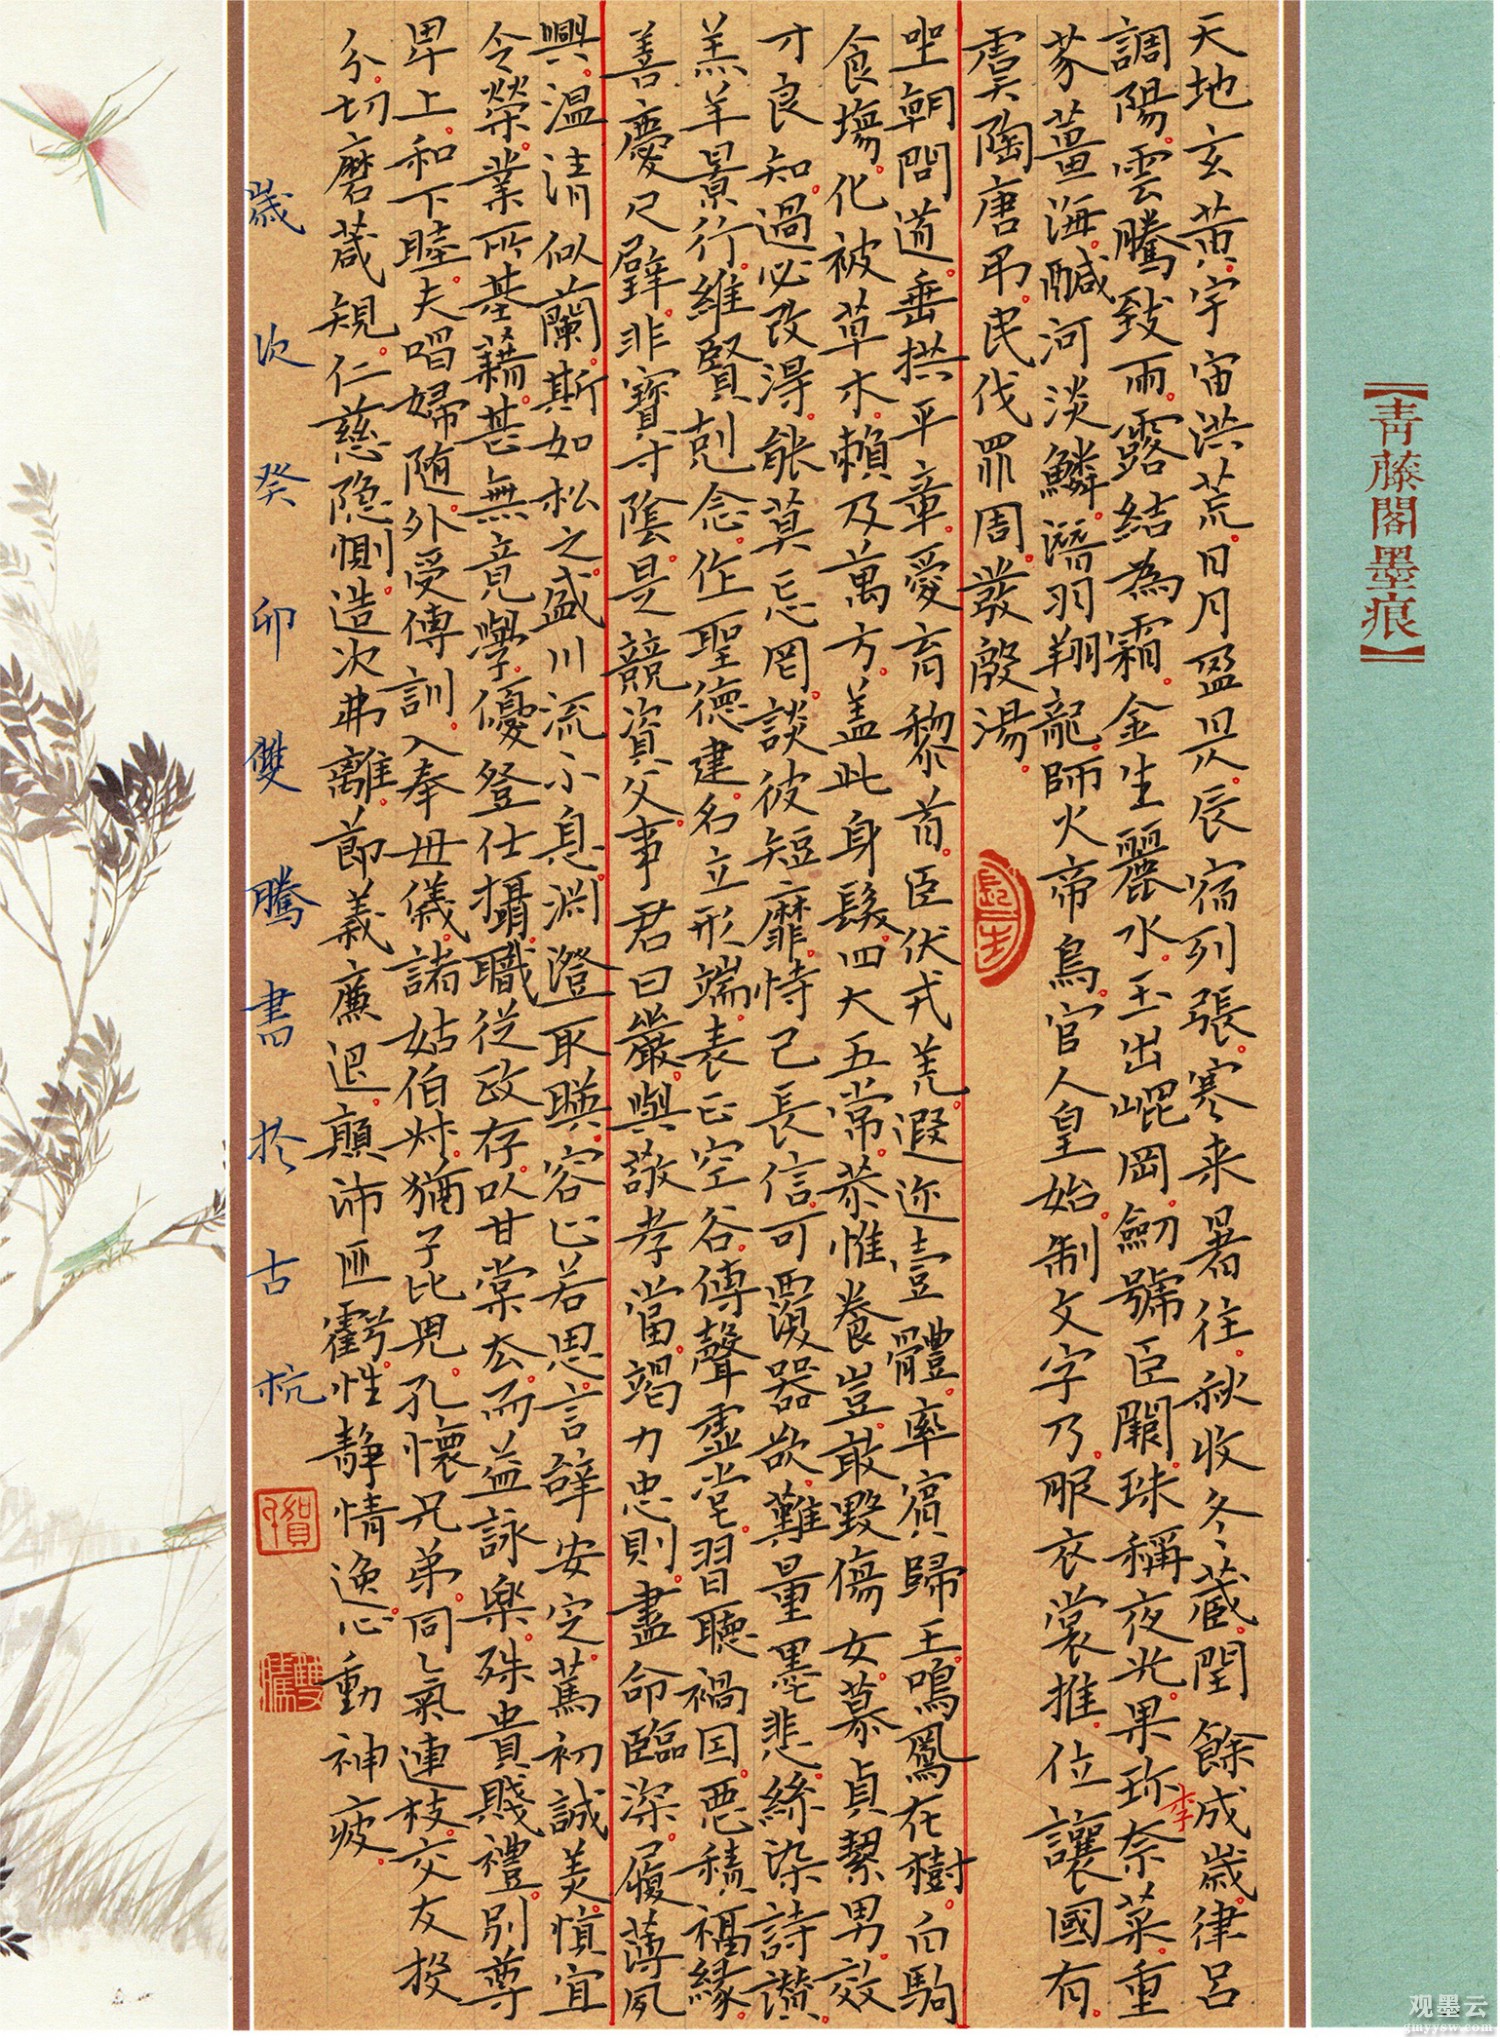 【青藤閣墨痕】
天地玄黃宇宙洪荒日月盈昃辰宿列張寒来暑往秋收冬藏閏餘成歲律呂
調陽雲騰致雨露結為霜金生麗水玉出崐岡劒號臣闕珠稱夜光果珍李奈菜重
芥薑海鹹河淡鱗潛羽翔龍師火帝鳥官人皇始制文字乃服衣裳推位讓國有
虞陶唐弔民伐罪周發殷湯
坐朝問道垂拱平章愛育黎首臣伏戎羌遐迩壹體率賓歸王鳴鳳在樹白駒
食場化被草木賴及萬方盖此身髮四大五常恭惟養豈敢毀傷女慕貞絜男效
才良知過必改得能莫忘罔談彼短靡恃己長信可覆器欲難量墨悲絲染詩讃
羔羊景行維賢剋念作聖德建名立形端表正空谷傳聲虛堂習聽禍因惡積福緣
善慶尺璧非寶寸陰是競資父事君曰嚴與敬孝當竭力忠則盡命臨深履薄夙
興温清似蘭斯如松之盛川流不息淵澄取暎容止若思言辭安定篤初誠美慎宜
令榮業所基藉甚無竟學優登仕攝職從政存以甘棠去而益詠樂殊貴賤禮別尊
卑上和下睦夫唱婦随外受傅訓入奉母儀諸姑伯叔猶子比兒孔懷兄弟同氣連枝交友投
分切磨箴規仁慈隐惻造次弗離節義廉退顛沛匪虧性静情逸心動神疲
歲次癸卯雙騰書於古杭
观墨云
gmyysw.com